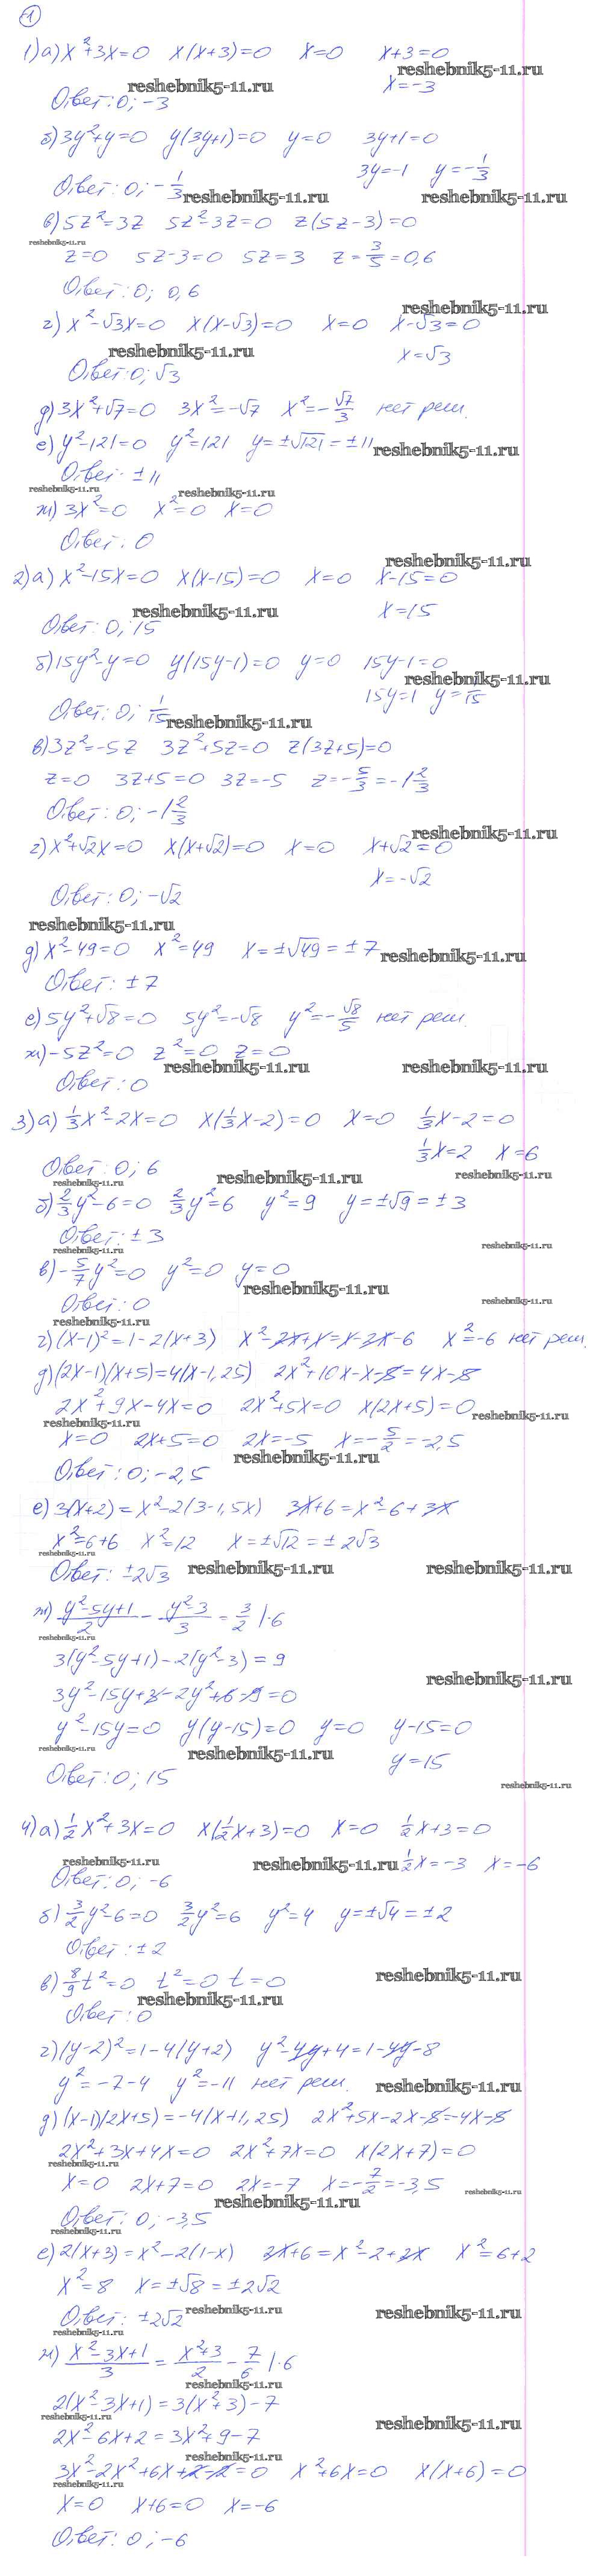 1
1) а) x²+3x=0 x(x+3)=0 x=0 x+3=0
reshebnik5-11.ru reshebnik5-11.ru x=-3
Ответ: 0; -3
б) 3y²+y=0 y(3y+1)=0 y=0 3y+1=0
3y=-1 y=-1/3
Ответ: 0; -1/3 reshebnik5-11.ru reshebnik5-11.ru
в) 5z²=3z 5z²-3z=0 z(5z-3)=0
reshebnik5-11.ru
z=0 5z-3=0 5z=3 z=3/5=0,6
Ответ: 0; 0,6
reshebnik5-11.ru
г) x²-√3x=0 x(x-√3)=0 x=0 x-√3=0
reshebnik5-11.ru x=√3
Ответ: 0; √3
д) 3x²+√7=0 3x²=-√7 x²=-√7/3 нет реш.
е) y²-121=0 y²=121 y=±√121=±11 reshebnik5-11.ru
Ответ: ±11
reshebnik5-11.ru reshebnik5-11.ru
ж) 3x²=0 x²=0 x=0
Ответ: 0
reshebnik5-11.ru
2) а) x²-15x=0 x(x-15)=0 x=0 x-15=0
reshebnik5-11.ru x=15
Ответ: 0; 15
б) 15y²-y=0 y(15y-1)=0 y=0 15y-1=0
reshebnik5-11.ru
15y=1 y=1/15
Ответ: 0; 1/15 reshebnik5-11.ru
в) 3z²=-5z 3z²+5z=0 z(3z+5)=0
z=0 3z+5=0 3z=-5 z=-5/3=-1 2/3
Ответ: 0; -1 2/3
reshebnik5-11.ru
г) x²+√2x=0 x(x+√2)=0 x=0 x+√2=0
x=-√2
Ответ: 0; -√2
reshebnik5-11.ru
д) x²-49=0 x²=49 x=±√49=±7 reshebnik5-11.ru
Ответ: ±7
е) 5y²+√8=0 5y²=-√8 y²=-√8/5 нет реш.
ж) -5z²=0 z²=0 z=0
reshebnik5-11.ru reshebnik5-11.ru
Ответ: 0
3) а) 1/3x²-2x=0 x(1/3x-2)=0 x=0 1/3x-2=0
1/3x=2 x=6
Ответ: 0; 6
reshebnik5-11.ru reshebnik5-11.ru reshebnik5-11.ru
б) 2/3y²-6=0 2/3y²=6 y²=9 y=±√9=±3
Ответ: ±3
reshebnik5-11.ru reshebnik5-11.ru
в) -5/7y²=0 y²=0 y=0
reshebnik5-11.ru
Ответ: 0 reshebnik5-11.ru
reshebnik5-11.ru
г) (x-1)²=1-2(x+3) x²-2x+1=1-2x-6 x²=-6 нет реш.
д) (2x-1)(x+5)=4(x-1,25) 2x²+10x-x-5=4x-5
2x²+9x-4x=0 2x²+5x=0 x(2x+5)=0
reshebnik5-11.ru reshebnik5-11.ru
x=0 2x+5=0 2x=-5 x=-5/2=-2,5
reshebnik5-11.ru
Ответ: 0; -2,5
е) 3(x+2)=x²-2(3-1,5x) 3x+6=x²-6+3x
x²=6+6 x²=12 x=±√12=±2√3
reshebnik5-11.ru
Ответ: ±2√3 reshebnik5-11.ru reshebnik5-11.ru
ж) (y²-5y+1)/2 - (y²-3)/3 = 3/2 |·6
reshebnik5-11.ru
3(y²-5y+1)-2(y²-3)=9
reshebnik5-11.ru
3y²-15y+3-2y²+6-9=0
y²-15y=0 y(y-15)=0 y=0 y-15=0
reshebnik5-11.ru reshebnik5-11.ru y=15
Ответ: 0; 15 reshebnik5-11.ru
4) а) 1/2x²+3x=0 x(1/2x+3)=0 x=0 1/2x+3=0
reshebnik5-11.ru reshebnik5-11.ru 1/2x=-3 x=-6
Ответ: 0; -6
б) 3/2y²-6=0 3/2y²=6 y²=4 y=±√4=±2
Ответ: ±2
reshebnik5-11.ru
в) 8/9t²=0 t²=0 t=0
reshebnik5-11.ru
Ответ: 0
г) (y-2)²=1-4(y+2) y²-4y+4=1-4y-8
y²=-7-4 y²=-11 нет реш. reshebnik5-11.ru
д) (x-1)(2x+5)=-4(x+1,25) 2x²+5x-2x-5=-4x-5
2x²+3x+4x=0 2x²+7x=0 x(2x+7)=0
reshebnik5-11.ru
x=0 2x+7=0 2x=-7 x=-7/2=-3,5 reshebnik5-11.ru
reshebnik5-11.ru
Ответ: 0; -3,5
reshebnik5-11.ru
е) 2(x+3)=x²-2(1-x) 2x+6=x²-2+2x x²=6+2
x²=8 x=±√8=±2√2
Ответ: ±2√2 reshebnik5-11.ru reshebnik5-11.ru
reshebnik5-11.ru
ж) (x²-3x+1)/3 = (x²+3)/2 - 7/6 |·6
reshebnik5-11.ru
2(x²-3x+1)=3(x²+3)-7
reshebnik5-11.ru reshebnik5-11.ru
2x²-6x+2=3x²+9-7
reshebnik5-11.ru
3x²-2x²+6x+2-2=0 x²+6x=0 x(x+6)=0
reshebnik5-11.ru
x=0 x+6=0 x=-6
Ответ: 0; -6